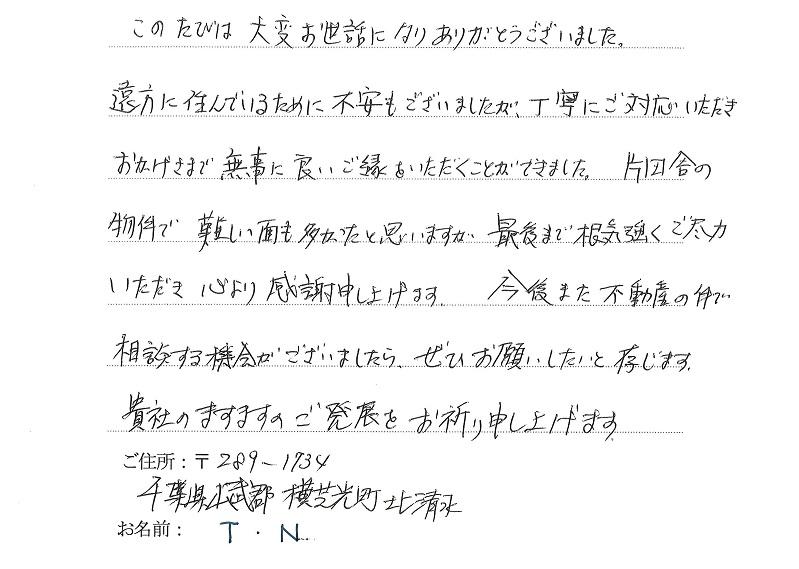 このたびは 大変お世話になりありがとうございました。
遠方に住んでいるために不安もございましたが、丁寧にご対応いただき
おかげさまで無事に良いご縁をいただくことができました。 片田舎の
物件で 難しい面も多かったと思いますが 最後まで根気強くご尽力
いただき 心より感謝申し上げます。 今後また不動産の件で
相談する機会がございましたら、ぜひお願いしたいと存じます。
貴社のますますのご発展をお祈り申し上げます
ご住所：〒289-1734
千葉県山武郡 横芝光町 北清水
お名前： T・N